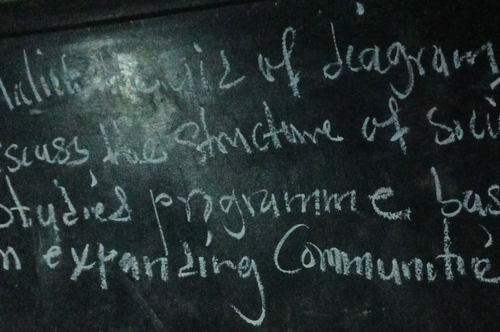 of diagram
iscuss the structure of soci
studies programme bas
n expanding Communitie